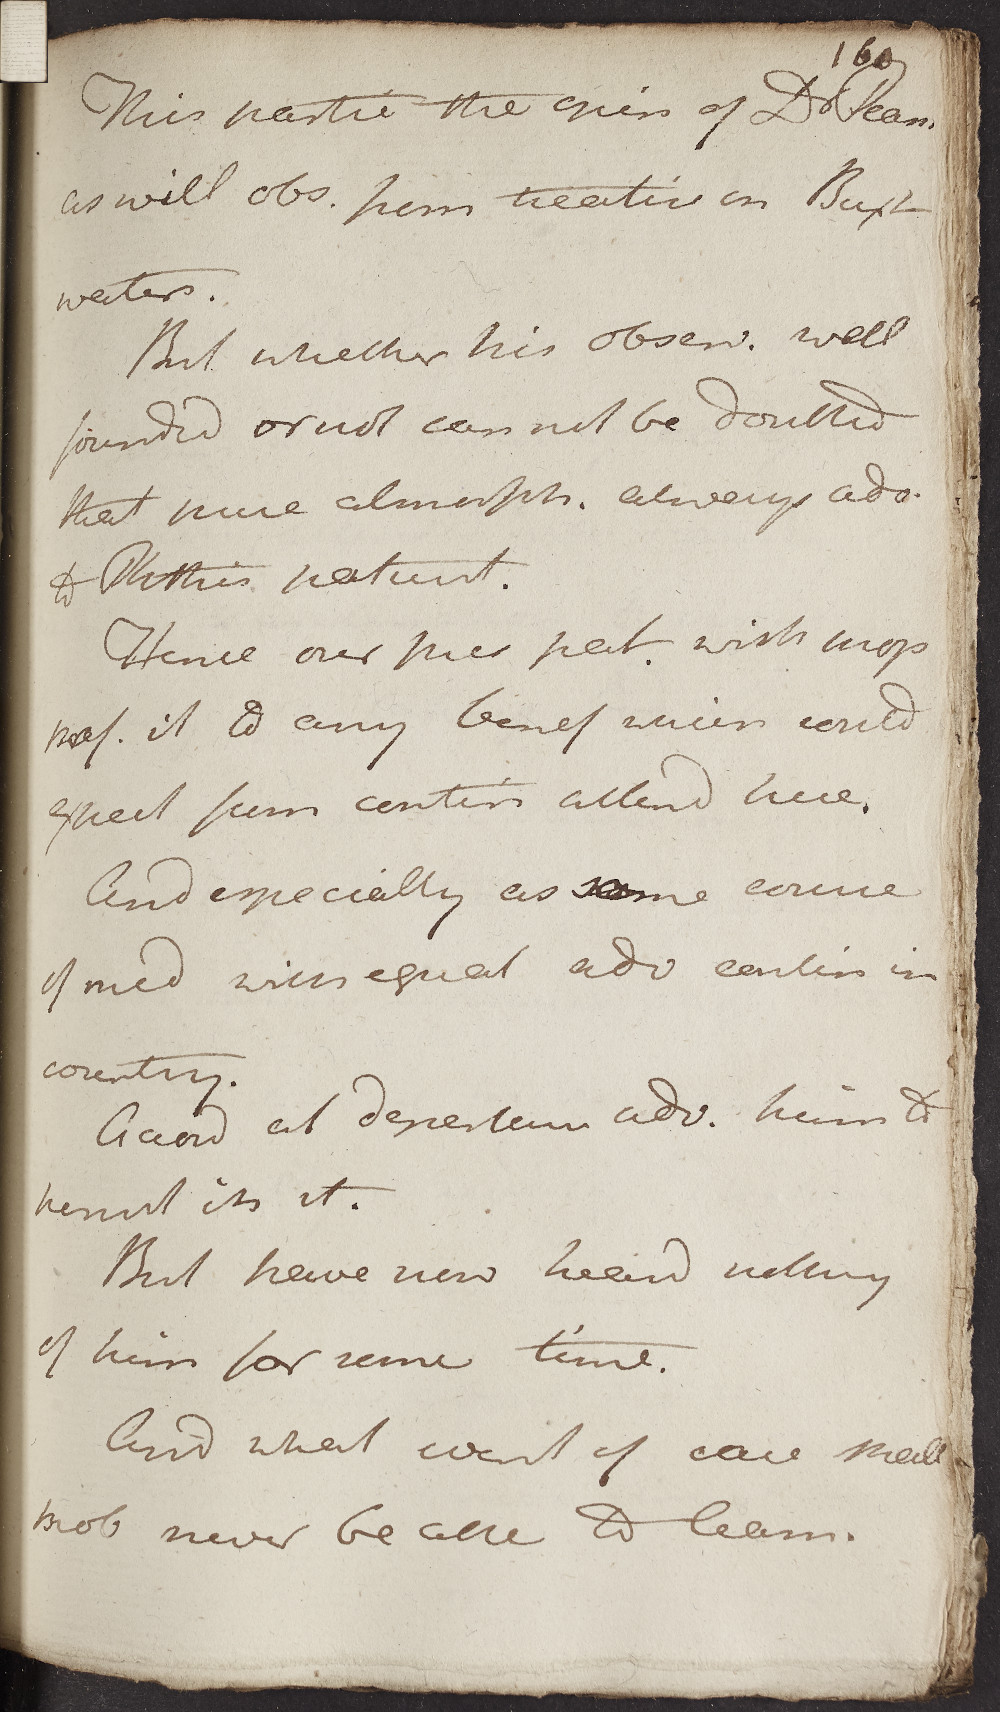 160
This partic the opin of Dr Pears.
as will obs. from treatise on Buxt
waters.
But whether his observ. well
founded or not can not be doubted
that pure atmosph. always adv.
to Phthis patient.
Hence our pres pat. wish
it to any benef which could
expect from contin attend here.
And especially as same course
of med with equal adv contin in
country.
Accord at departure adv. him to
permit its it.
But have now heard nothing
of him for some time.
And what event of case shall
prob never be able to learn.